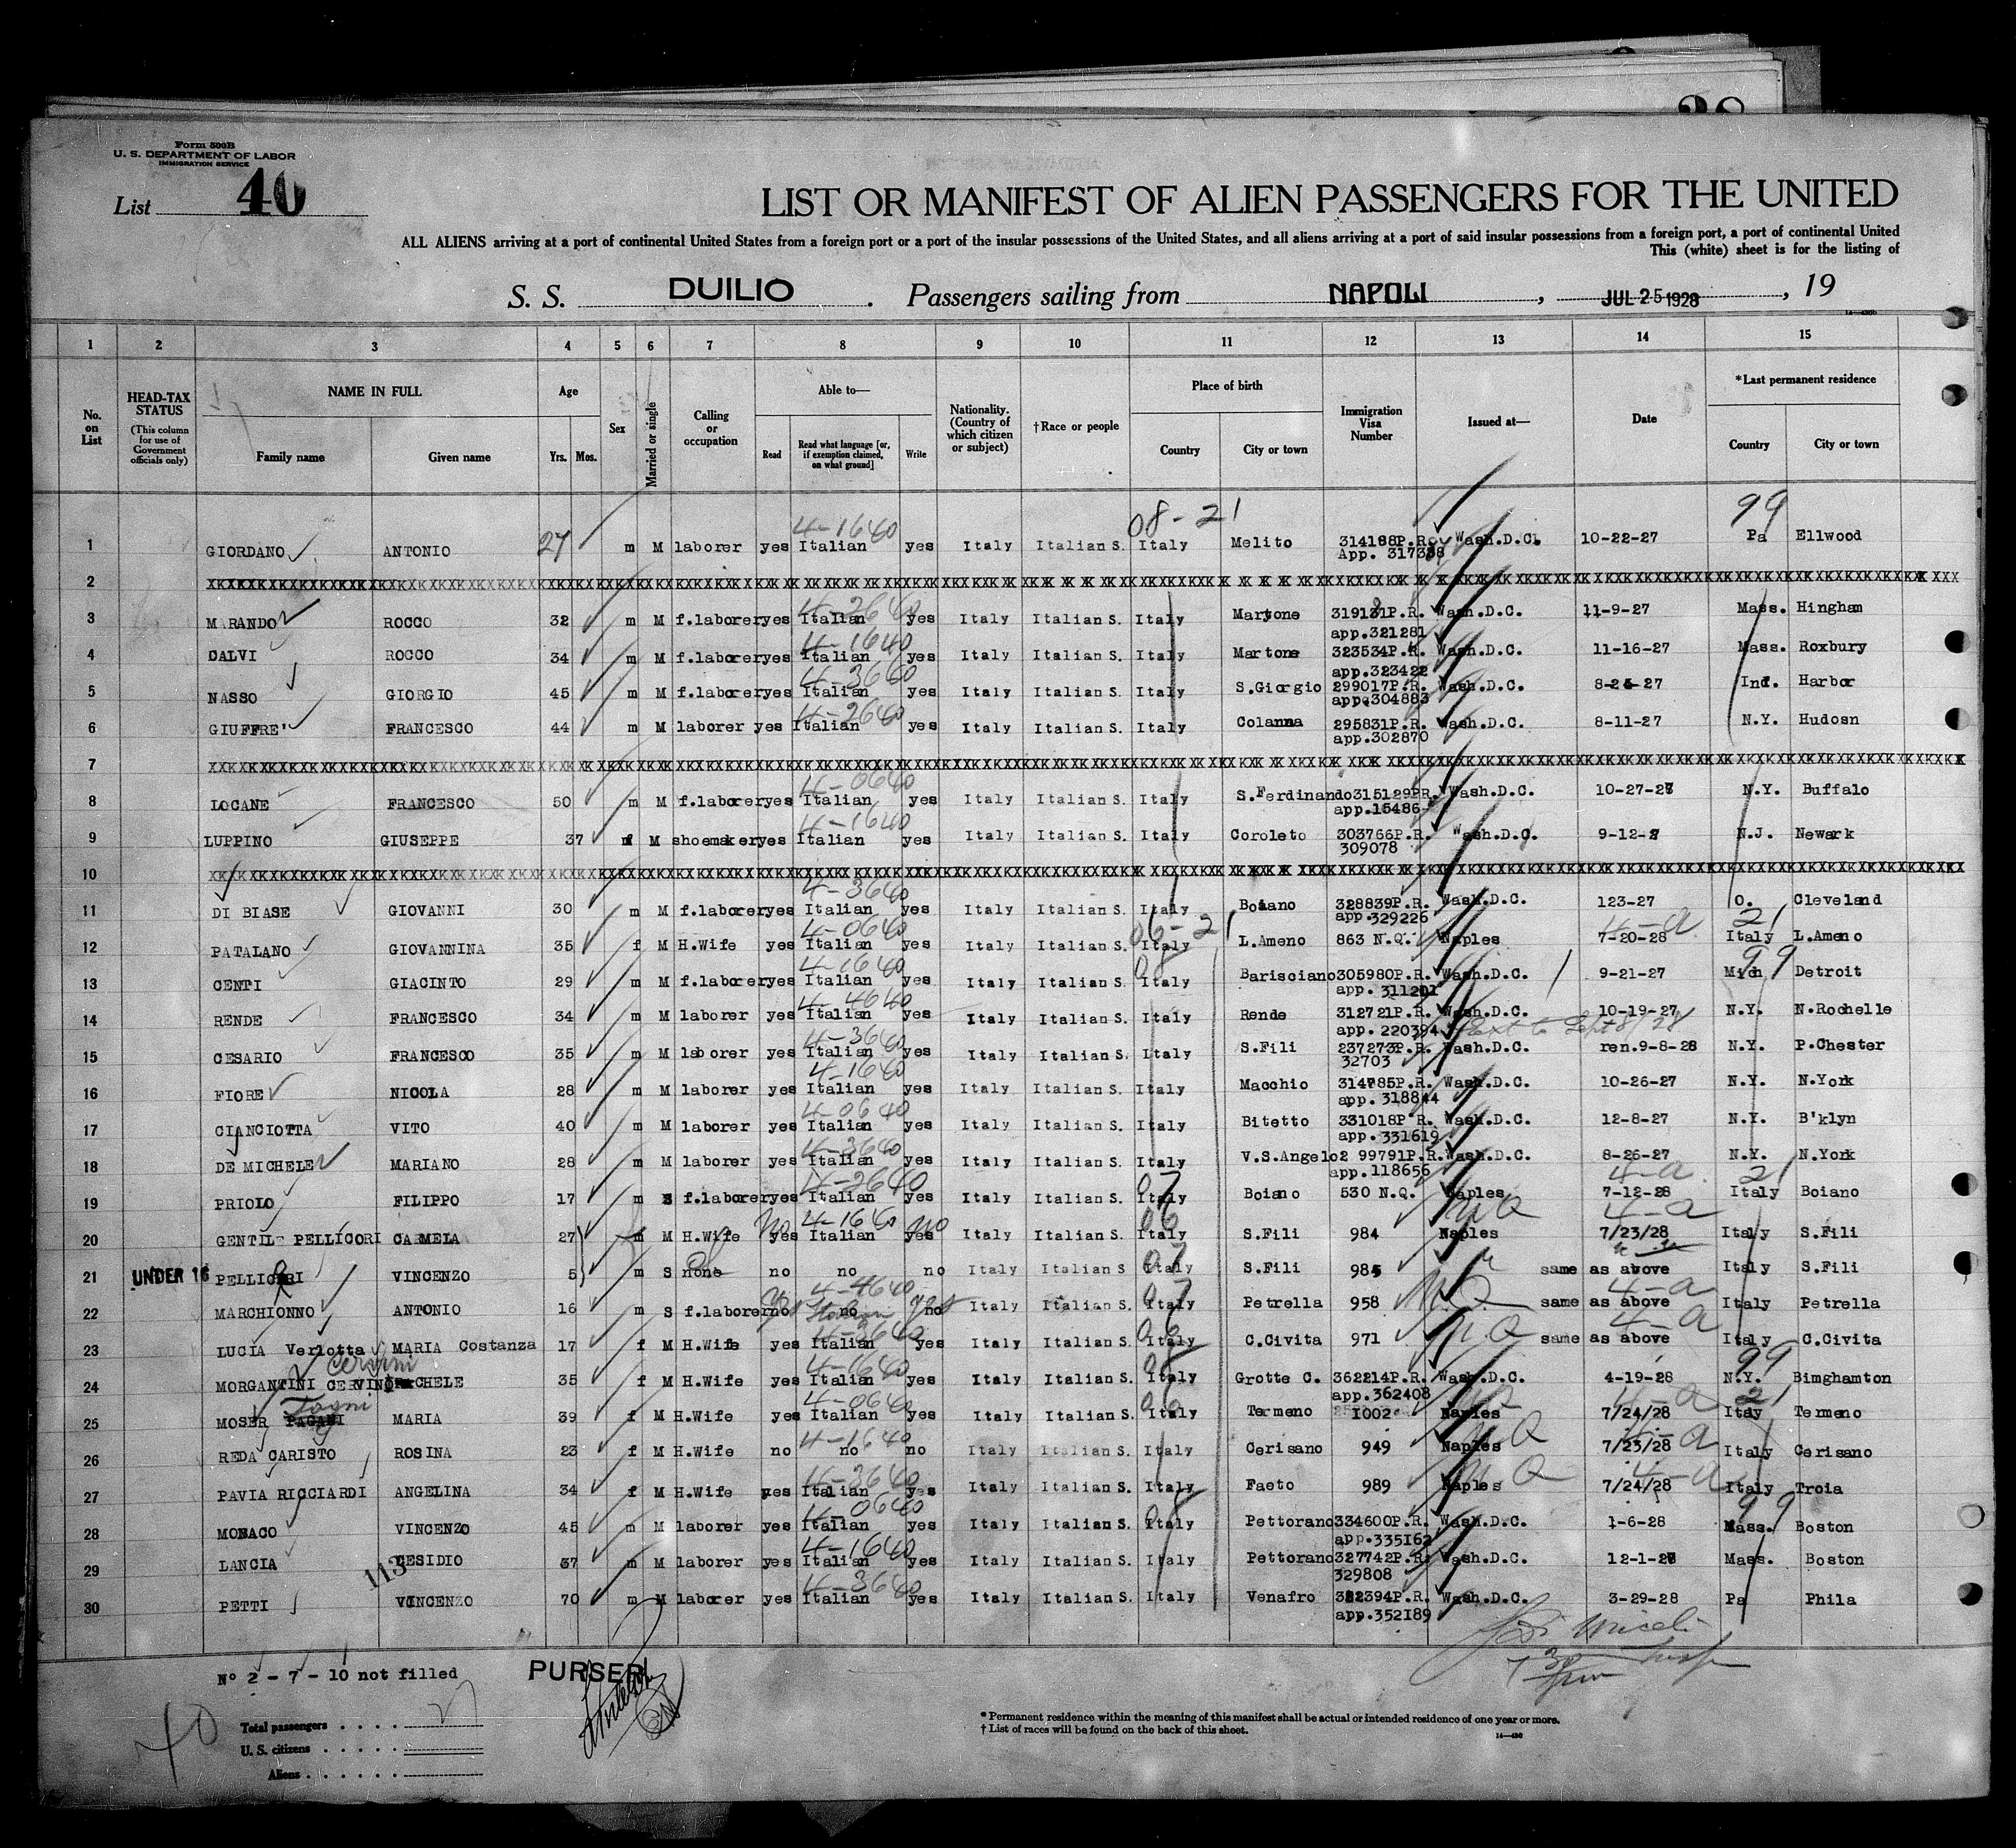 Form 500B
U. S. DEPARTMENT OF LABOR
IMMIGRATION SERVICE
List 40
LIST OR MANIFEST OF ALIEN PASSENGERS FOR THE UNITED
ALL ALIENS arriving at a port of continental United States from a foreign port or a port of the insular possessions of the United States, and all aliens arriving at a port of said insular possessions from a foreign port, a port of continental United
This (white) sheet is for the listing of
S. S. DUILIO . Passengers sailing from NAPOLI , JUL 25 1928 , 19
1 2 3 4 5 6 7 8 9 10 11 12 13 14 15
No. on List HEAD-TAX STATUS (This column for use of Government officials only) NAME IN FULL Family name Given name Age Yrs. Mos. Sex Married or single Calling or occupation Able to— Read Read what language [or, if exemption claimed, on what ground] Write Nationality. (Country of which citizen or subject) †Race or people Place of birth Country City or town Immigration Visa Number Issued at— Date *Last permanent residence Country City or town
4-1640 08-21 99
1 GIORDANO ANTONIO 27 m M laborer yes Italian yes Italy Italian S. Italy Melito 314188P.R. Wash.D.C. 10-22-27 Pa Ellwood
App.
2
4-2640
3 MARANDO ROCCO 32 m M f.laborer yes Italian yes Italy Italian S. Italy Martone P.R. Wash.D.C. 11-9-27 Mass. Hingham
app.321281
4-1640
4 CALVI ROCCO 34 m M f.laborer yes Italian yes Italy Italian S. Italy Martone 323534P.R. Wash.D.C. 11-16-27 Mass. Roxbury
app.323422
4-3660
5 NASSO GIORGIO 45 m M f.laborer yes Italian yes Italy Italian S. Italy S.Giorgio 299017P.R. Wash.D.C. 27 Ind. Harbor
app.304883
4-2640
6 GIUFFRE' FRANCESCO 44 m M laborer yes Italian yes Italy Italian S. Italy Colanna 295831P.R. Wash.D.C. 8-11-27 N.Y. Hudosn
app.302870
7
4-0640
8 LOCANE FRANCESCO 50 m M f.laborer yes Italian yes Italy Italian S. Italy S.Ferdinando 315129PR. Wash.D.C. 10-27-27 N.Y. Buffalo
app.15486
4-1640
9 LUPPINO GIUSEPPE 37 m M shoemaker yes Italian yes Italy Italian S. Italy Coroleto 303766P.R. Wash.D.C. 9-12- N.J. Newark
309078
10
4-3640
11 DI BIASE GIOVANNI 30 m M f.laborer yes Italian yes Italy Italian S. Italy Boiano 328839P.R. Wash.D.C. 123-27 O. Cleveland
app.329226
4-0640 06-21 4-a 21
12 PATALANO GIOVANNINA 35 f M H.Wife yes Italian yes Italy Italian S. Italy L.Ameno 863 N.Q. Naples 7-20-28 Italy L.Ameno
4-1640 08 99
13 CENTI GIACINTO 29 m M f.laborer yes Italian yes Italy Italian S. Italy Barisciano 305980P.R. Wash.D.C. 9-21-27 Mich Detroit
app. 311201
4-4640
14 RENDE FRANCESCO 34 m M laborer yes Italian yes Italy Italian S. Italy Rende 312721P.R. Wash.D.C. 10-19-27 N.Y. N.Rochelle
app. 220394 Ext to Sept 8/28
4-3640
15 CESARIO FRANCESCO 35 m M laborer yes Italian yes Italy Italian S. Italy S.Fili 237273P.R. Wash.D.C. ren.9-8-28 N.Y. P.Chester
32703
4-1640
16 FIORE NICOLA 28 m M laborer yes Italian yes Italy Italian S. Italy Macchio 314785P.R. Wash.D.C. 10-26-27 N.Y. N.York
app. 318844
4-0640
17 CIANCIOTTA VITO 40 m M laborer yes Italian yes Italy Italian S. Italy Bitetto 331018P.R. Wash.D.C. 12-8-27 N.Y. B'klyn
app.331619
4-3640
18 DE MICHELE MARIANO 28 m M laborer yes Italian yes Italy Italian S. Italy V.S.Angelo 2 99791P.R. Wash.D.C. 8-26-27 N.Y. N.York
app.118656
4-2640 07 4-a 21
19 PRIOLO FILIPPO 17 m S f.laborer yes Italian yes Italy Italian S. Italy Boiano 530 N.Q. Naples 7-12-28 Italy Boiano
No 4-1640 no 06 NQ 4-a
20 GENTILE PELLICORI CARMELA 27 f M H.Wife yes Italian yes Italy Italian S. Italy S.Fili 984 Naples 7/23/28 Italy S.Fili
21 UNDER 16 PELLICORI VINCENZO 5 m S none no no no Italy Italian S Italy S.Fili 985 same as above Italy S.Fili
yes 4-4640 Italian yes 07 NQ 4-a
22 MARCHIONNO ANTONIO 16 m S f.laborer no no no Italy Italian S. Italy Petrella 958 same as above Italy Petrella
4-3640 NQ 4-a
23 LUCIA Verlotta MARIA Costanza 17 f M H.Wife yes Italian yes Italy Italian S. Italy C.Civita 971 same as above Italy C.Civita
Cervini 4-1640 08 99
24 MORGANTINI CERVINO RACHELE 35 f M H.Wife yes Italian yes Italy Italian S. Italy Grotte C. 362214P.R. Wash.D.C. 4-19-28 N.Y. Bimghamton
app.362408
4-0640 06 NQ 4-a 21
25 MOSER PAGANI MARIA 39 f M H.Wife yes Italian yes Italy Italian S. Italy Termeno 1002 Naples 7/24/28 Italy Termeno
4-1640 NQ 4-a
26 REDA CARISTO ROSINA 23 f M H.Wife no no no Italy Italian S. Italy Cerisano 949 Naples 7/23/28 Italy Cerisano
4-3640 NQ 4-a
27 PAVIA RICCIARDI ANGELINA 34 f M H.Wife yes Italian yes Italy Italian S. Italy Faeto 989 Naples 7/24/28 Italy Troia
4-0640 08 99
28 MONACO VINCENZO 45 m M laborer yes Italian yes Italy Italian S. Italy Pettorano 334600P.R. Wash.D.C. 1-6-28 Mass. Boston
app.335162
4-1640
29 LANCIA CESIDIO 37 m M laborer yes Italian yes Italy Italian S. Italy Pettorano 327742P.R. Wash.D.C. 12-1-27 Mass. Boston
113 329808
4-3640
30 PETTI VINCENZO 70 m M laborer yes Italian yes Italy Italian S. Italy Venafro P.R. Wash.D.C. 3-29-28 Pa Phila
app.352189
Nº 2 - 7 - 10 not filled
PURSER
40
Total passengers . . . . 27
U. S. citizens . . . . .
Aliens . . . . . .
* Permanent residence within the meaning of this manifest shall be actual or intended residence of one year or more.
† List of races will be found on the back of this sheet.